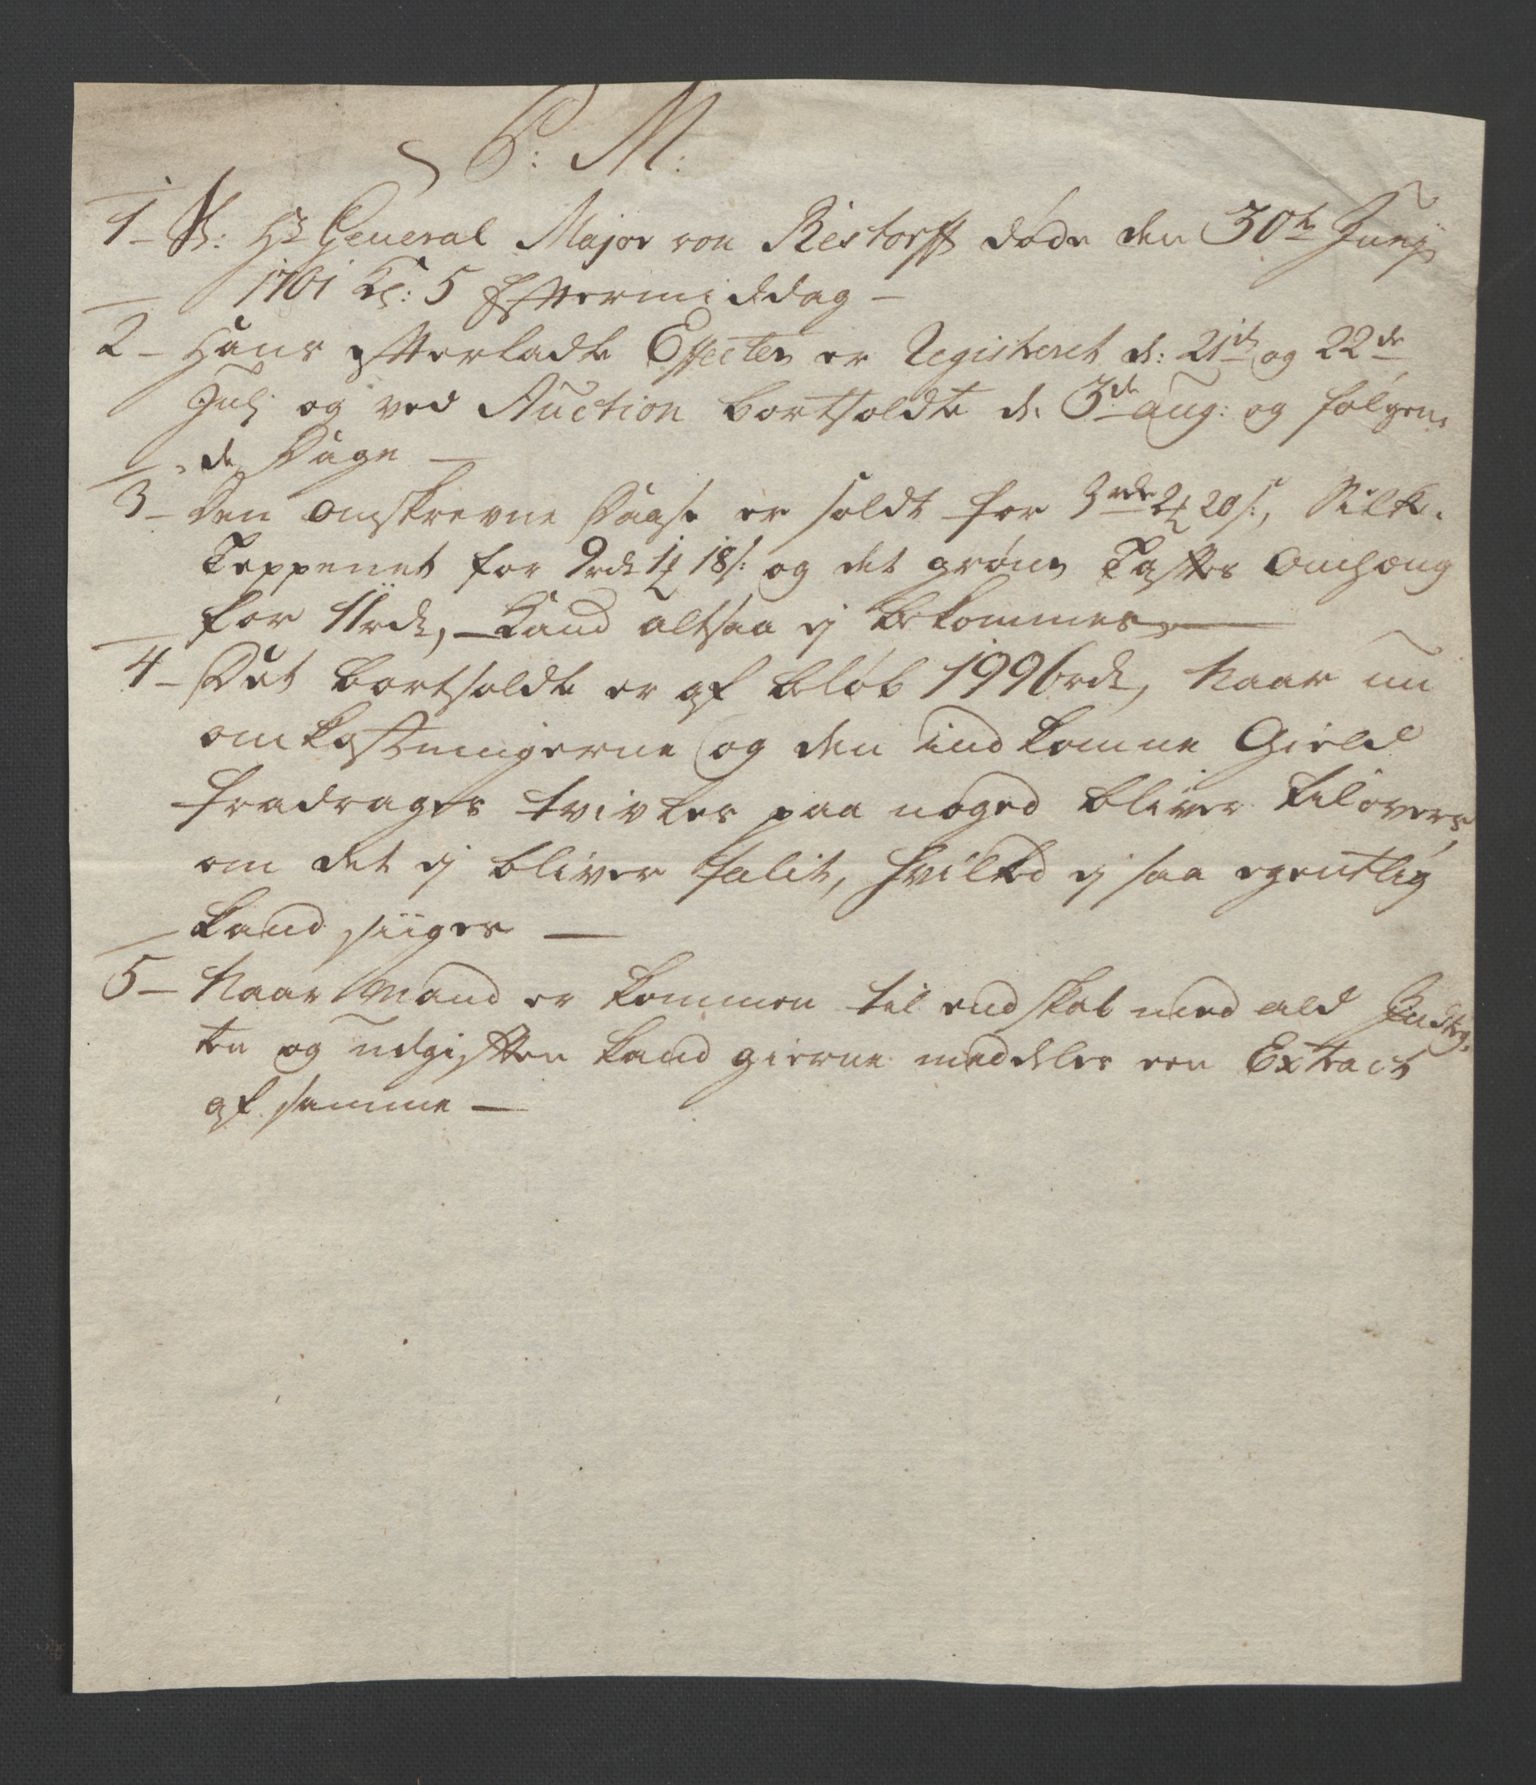 P: M:
1 – S: Hr General Major von Restorff døde den 30te Junij
1761 Kl: 5 Eftermiddag –
2 – Hans efterladte Effecter er Registeret d: 21de og 22de
Julj og ved Auction bortsoldte d. 3de Aug: og følgen-
de Dage –
3 – Den omskrevne Daase er soldt for 3rdr 2 20 s:, Silk-
Teppenet for 9rd 1 18 s: og det grøne Tafftes Omhæng
for 11rd, – Kand altsaa ej bekommes –
4 – Det bortsoldte er af beløb 1996rd, Naar nu
omkostningerne og den indkomne Gield
fradrages tvivles paa noged bliver tilovers,
om det ej bliver falit, hvilked ej saa egentlig
kand siiges –
5 – Naar Mand er kommen til endskab med ald Indtæg-
ten og udgiften kand gierne meddeles een Extract
af samme –